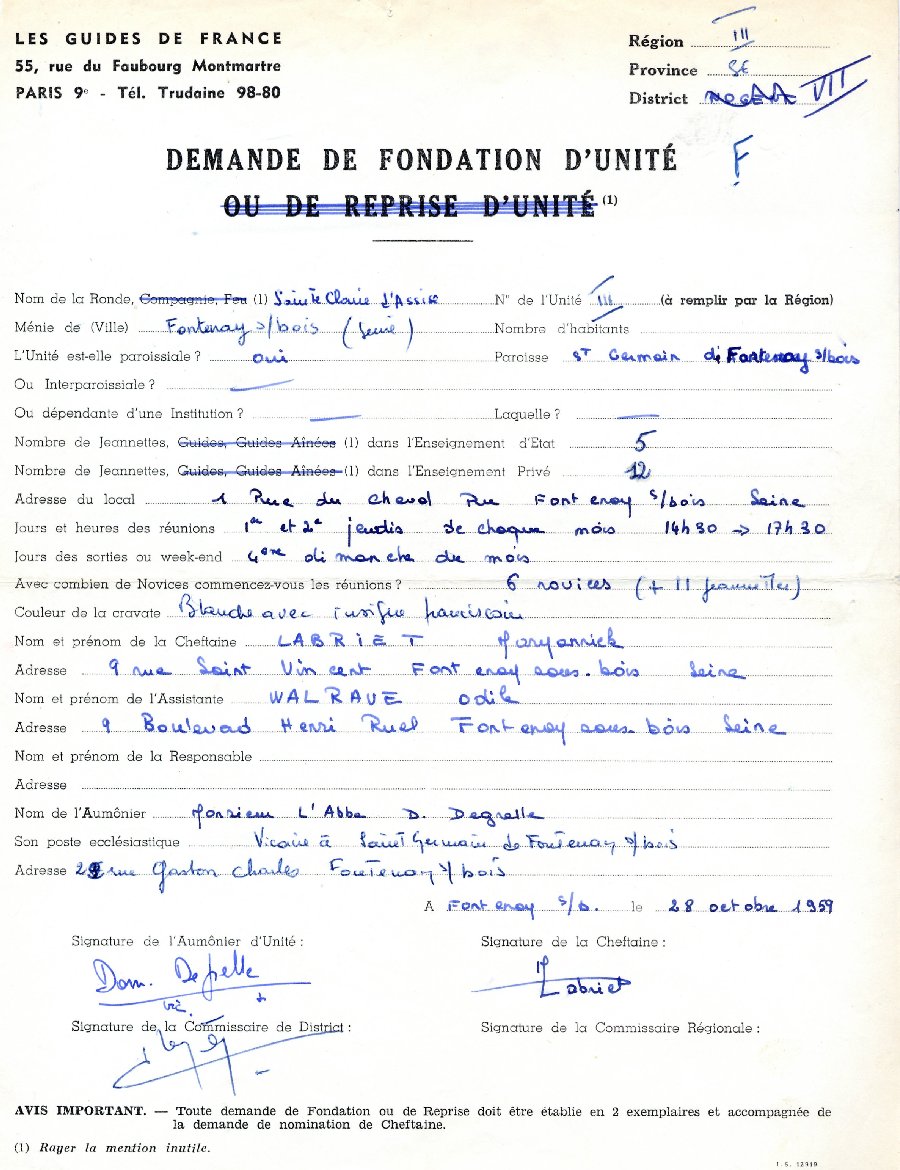 LES GUIDES DE FRANCE
55, rue du Faubourg Montmartre
PARIS 9e - Tél. Trudaine 98-80
Région III
Province SE
District VII
DEMANDE DE FONDATION D'UNITÉ F
OU DE REPRISE D'UNITÉ (1)
Nom de la Ronde, Compagnie, Feu (1) Sainte Claire d'Assise N° de l'Unité III (à remplir par la Région)
Ménie de (Ville) Fontenay s/bois (Seine) Nombre d'habitants
L'Unité est-elle paroissiale ? oui Paroisse St Germain de Fontenay s/bois
Ou Interparoissiale ? —
Ou dépendante d'une Institution ? — Laquelle ? —
Nombre de Jeannettes, Guides, Guides Aînées (1) dans l'Enseignement d'Etat 5
Nombre de Jeannettes, Guides, Guides Aînées (1) dans l'Enseignement Privé 12
Adresse du local 1 Rue du Cheval Ru Fontenay s/bois Seine
Jours et heures des réunions 1er et 2e jeudis de chaque mois 14h30 -> 17h30
Jours des sorties ou week-end 4ème dimanche du mois
Avec combien de Novices commencez-vous les réunions ? 6 novices (+ 11 jeannettes)
Couleur de la cravate Blanche avec insigne franciscain
Nom et prénom de la Cheftaine LABRIET Maryannick
Adresse 9 rue Saint Vincent Fontenay sous-bois Seine
Nom et prénom de l'Assistante WALRAVE Odile
Adresse 9 Boulevard Henri Ruel Fontenay sous-bois Seine
Nom et prénom de la Responsable
Adresse
Nom de l'Aumônier Monsieur L'Abbe D. Degrelle
Son poste ecclésiastique Vicaire à Saint Germain de Fontenay s/bois
Adresse rue Gaston Charles Fontenay s/bois
A Fontenay s/b. le 28 octobre 1959
Signature de l'Aumônier d'Unité : Signature de la Cheftaine :
Dom. Degrelle M Labriet
vic.
Signature de la Commissaire de District : Signature de la Commissaire Régionale :
AVIS IMPORTANT. — Toute demande de Fondation ou de Reprise doit être établie en 2 exemplaires et accompagnée de
la demande de nomination de Cheftaine.
(1) Rayer la mention inutile.